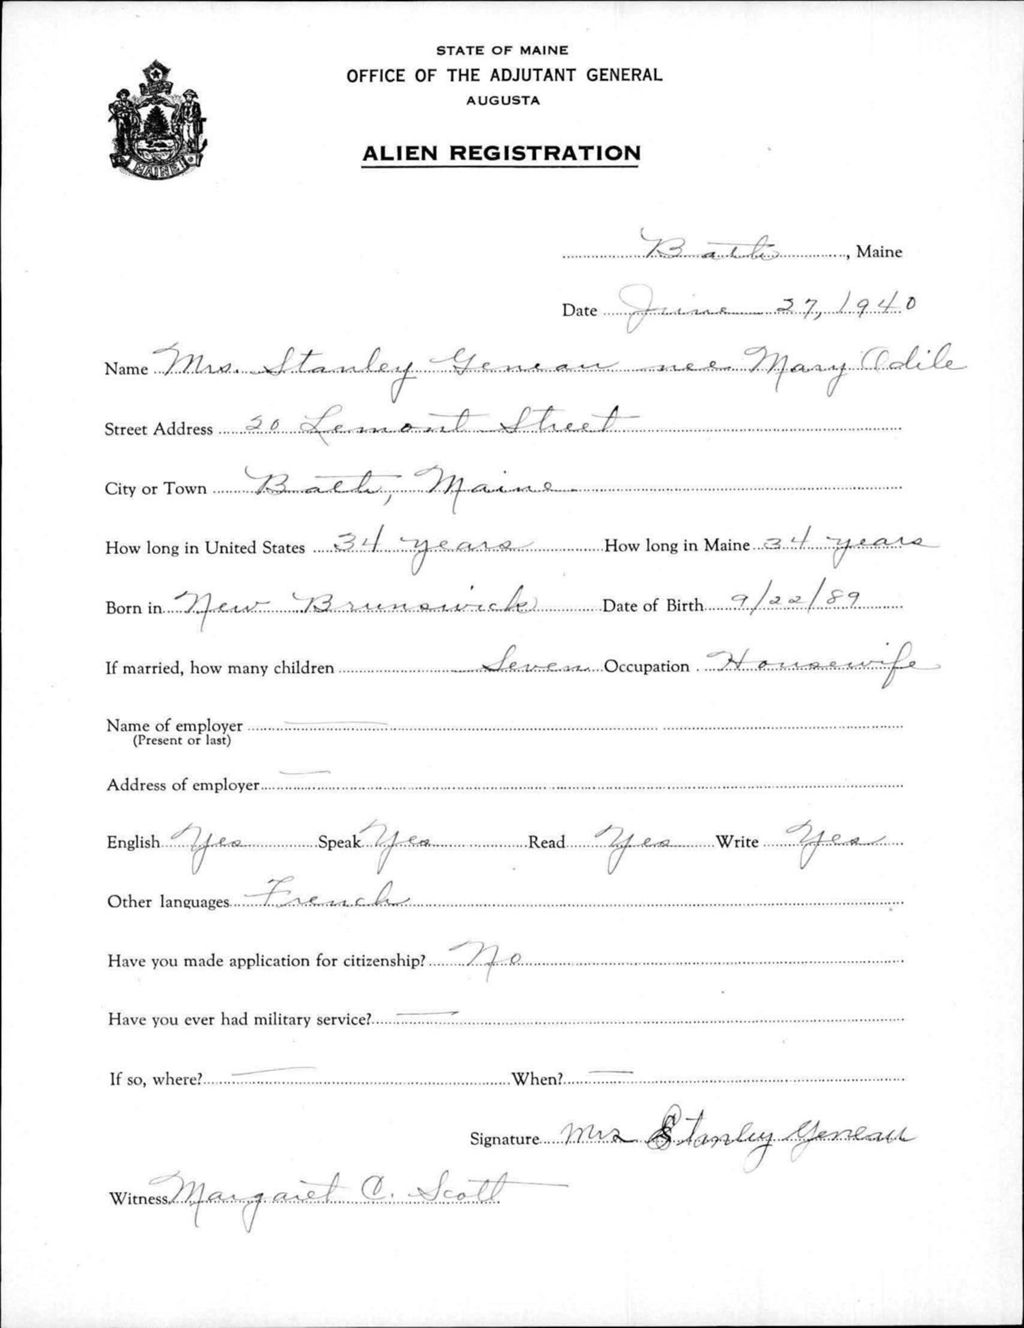 STATE OF MAINE
OFFICE OF THE ADJUTANT GENERAL
AUGUSTA
ALIEN REGISTRATION
MAINE
Bath, Maine
Date June 27, 1940
Name Mrs. Stanley Geneau nee Mary Odile
Street Address 20 Lemont Street
City or Town Bath, Maine
How long in United States 34 years How long in Maine 34 years
Born in New Brunswick Date of Birth 9/22/89
If married, how many children Seven Occupation Housewife
Name of employer
(Present or last)
Address of employer
English Yes Speak Yes Read Yes Write Yes
Other languages French
Have you made application for citizenship? No
Have you ever had military service?
If so, where? When?
Signature Mrs Stanley Geneau
Witness Margaret C. Scott